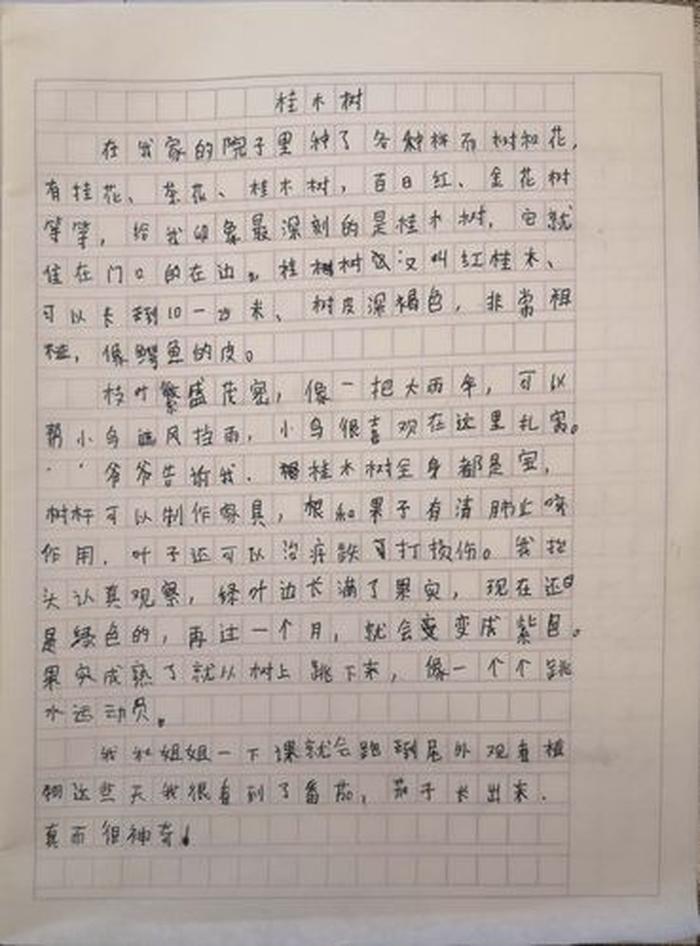 桂木树
在我家的院子里种了各种样而树和花,
有桂花、茶花、桂木树,百日红、金花树
等等,给我印象最深刻的是桂木树,它就
住在门口的在边。桂树又叫红桂木、
可以长到10一20米、树皮深褐色,非常粗
糙,像鳄鱼的皮。
枝叶繁盛茂密,像一把大雨伞,可以
帮小鸟遮风挡雨,小鸟很喜观在这里扎窝。
爷爷告诉我.桂木树全身都是宝,
树杆可以制作家具,根和果子有清肺止咳
作用.叶子还可以治疗跌打损伤。我抬
头认真观察,绿叶边长满了果实,现在还
是绿色的,再过一个月,就会变成紫色。
果实成熟了就从树上跳下来,像一个个跳
水运动员。
我和姐姐一下课就会跑到屋外观看植
物这些天我很看到了番茄,茄子长出来.
真而很神奇!